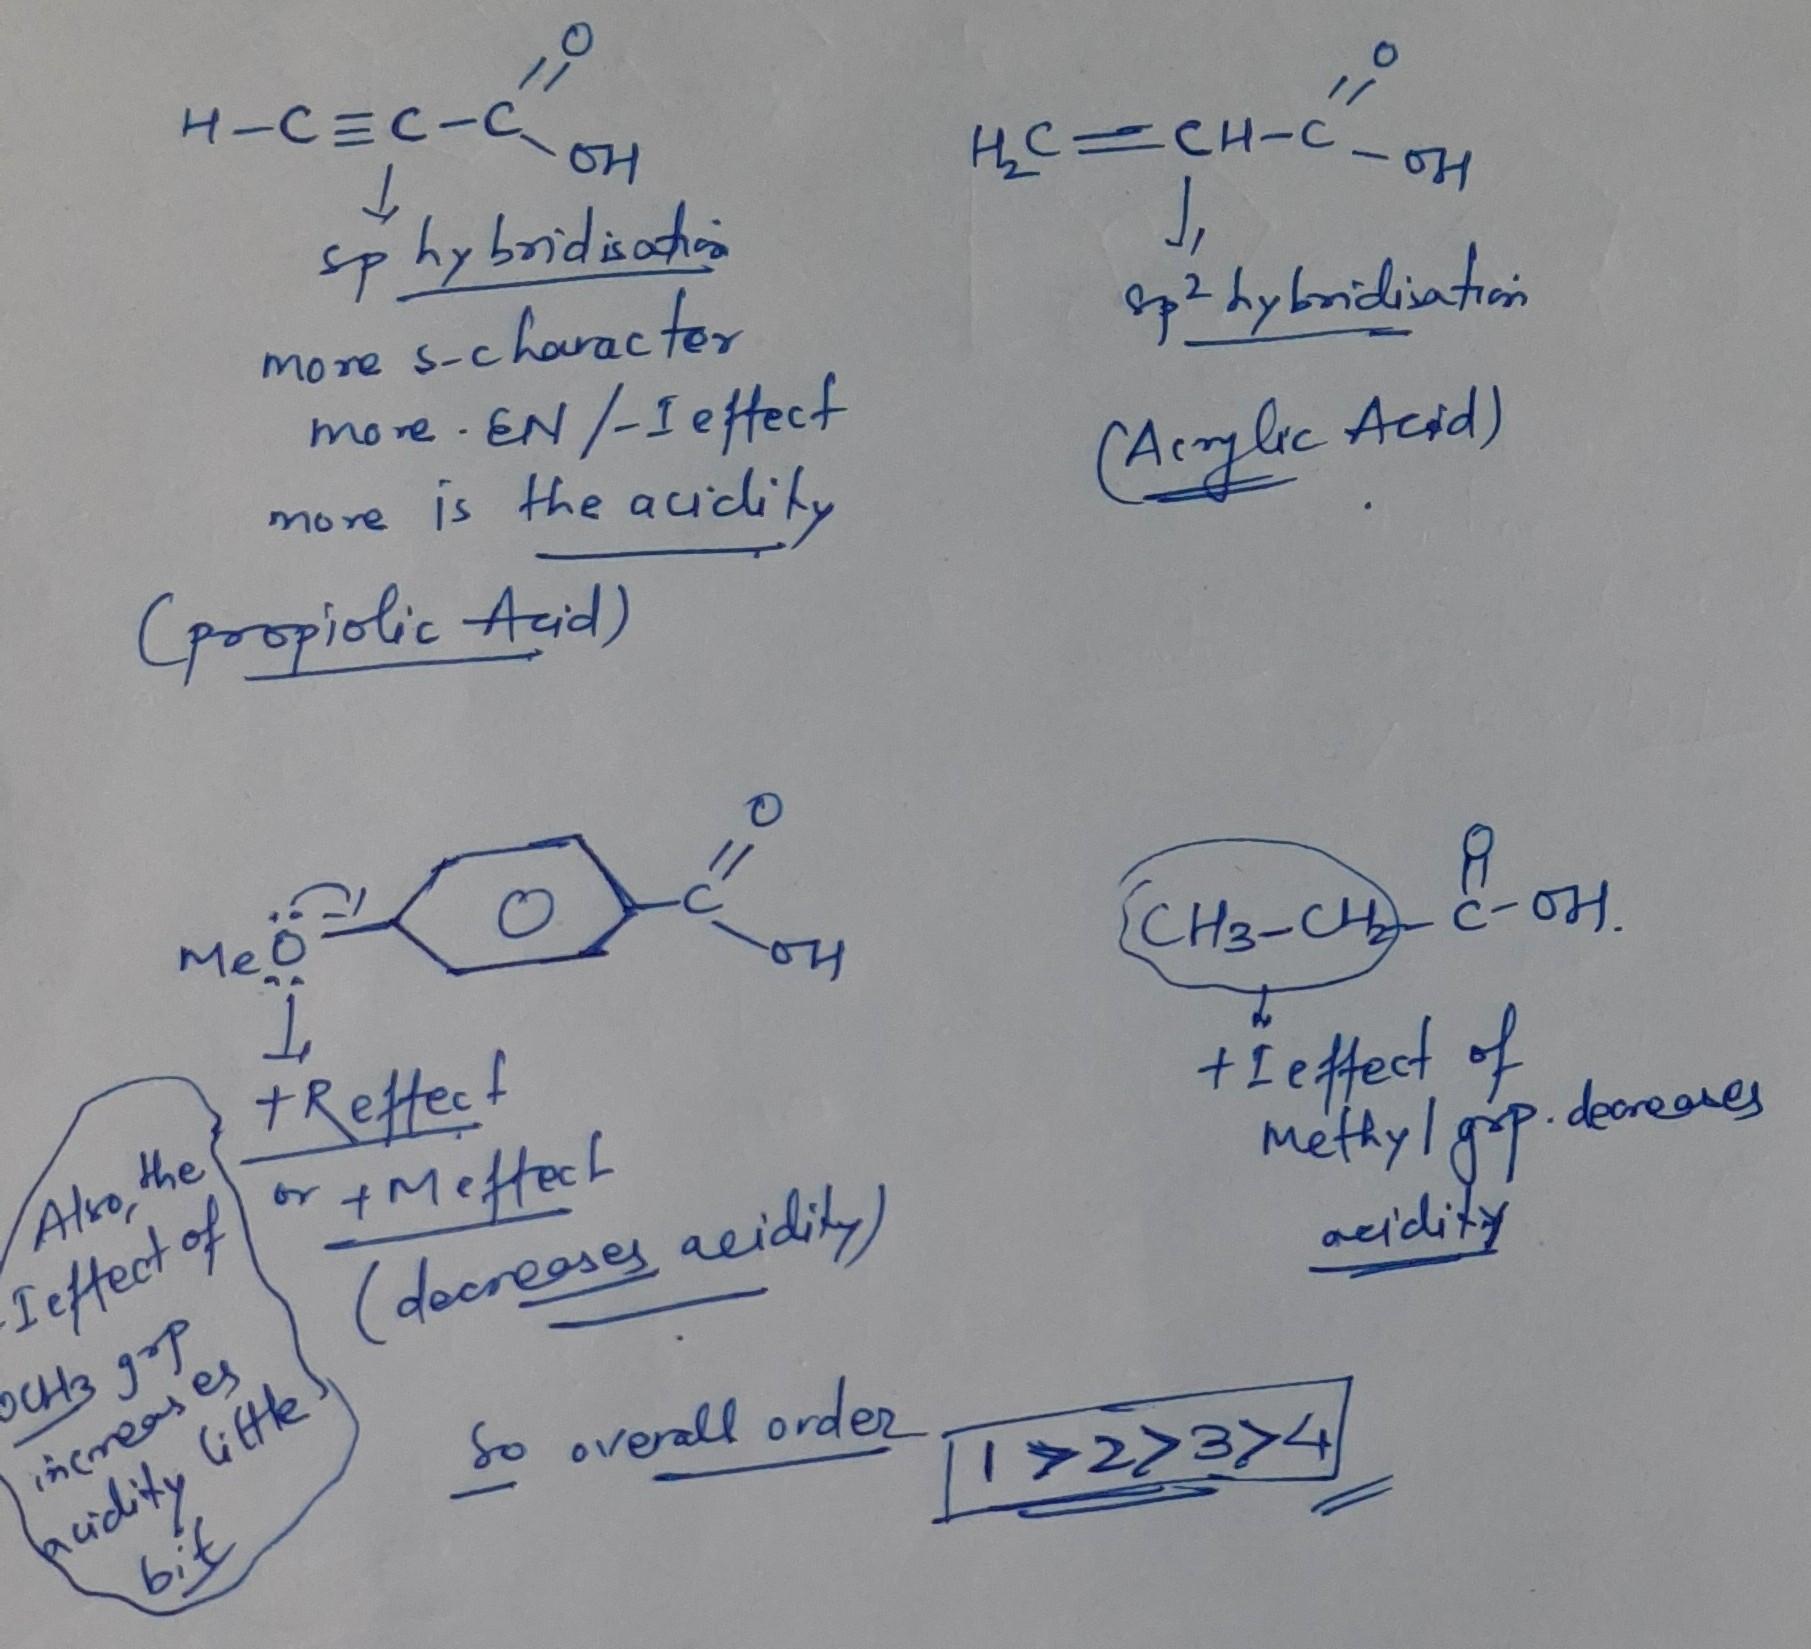 H-C≡C-C
O
OH
sp hybridisation
more s-character
more . EN/-I effect
more is the acidity
(propiolic Acid)
H₂C=CH-C-OH
O
sp² hybridisation
(Acrylic Acid)
MeO
C
O
OH
+R effect
or +M effect
(decreases acidity)
Also, the
-I effect of
OCH3 grp
increases
acidity little
bit
CH3-CH2-C-OH.
O
+I effect of
Methyl grp. decreases
acidity
So overall order 1>2>3>4